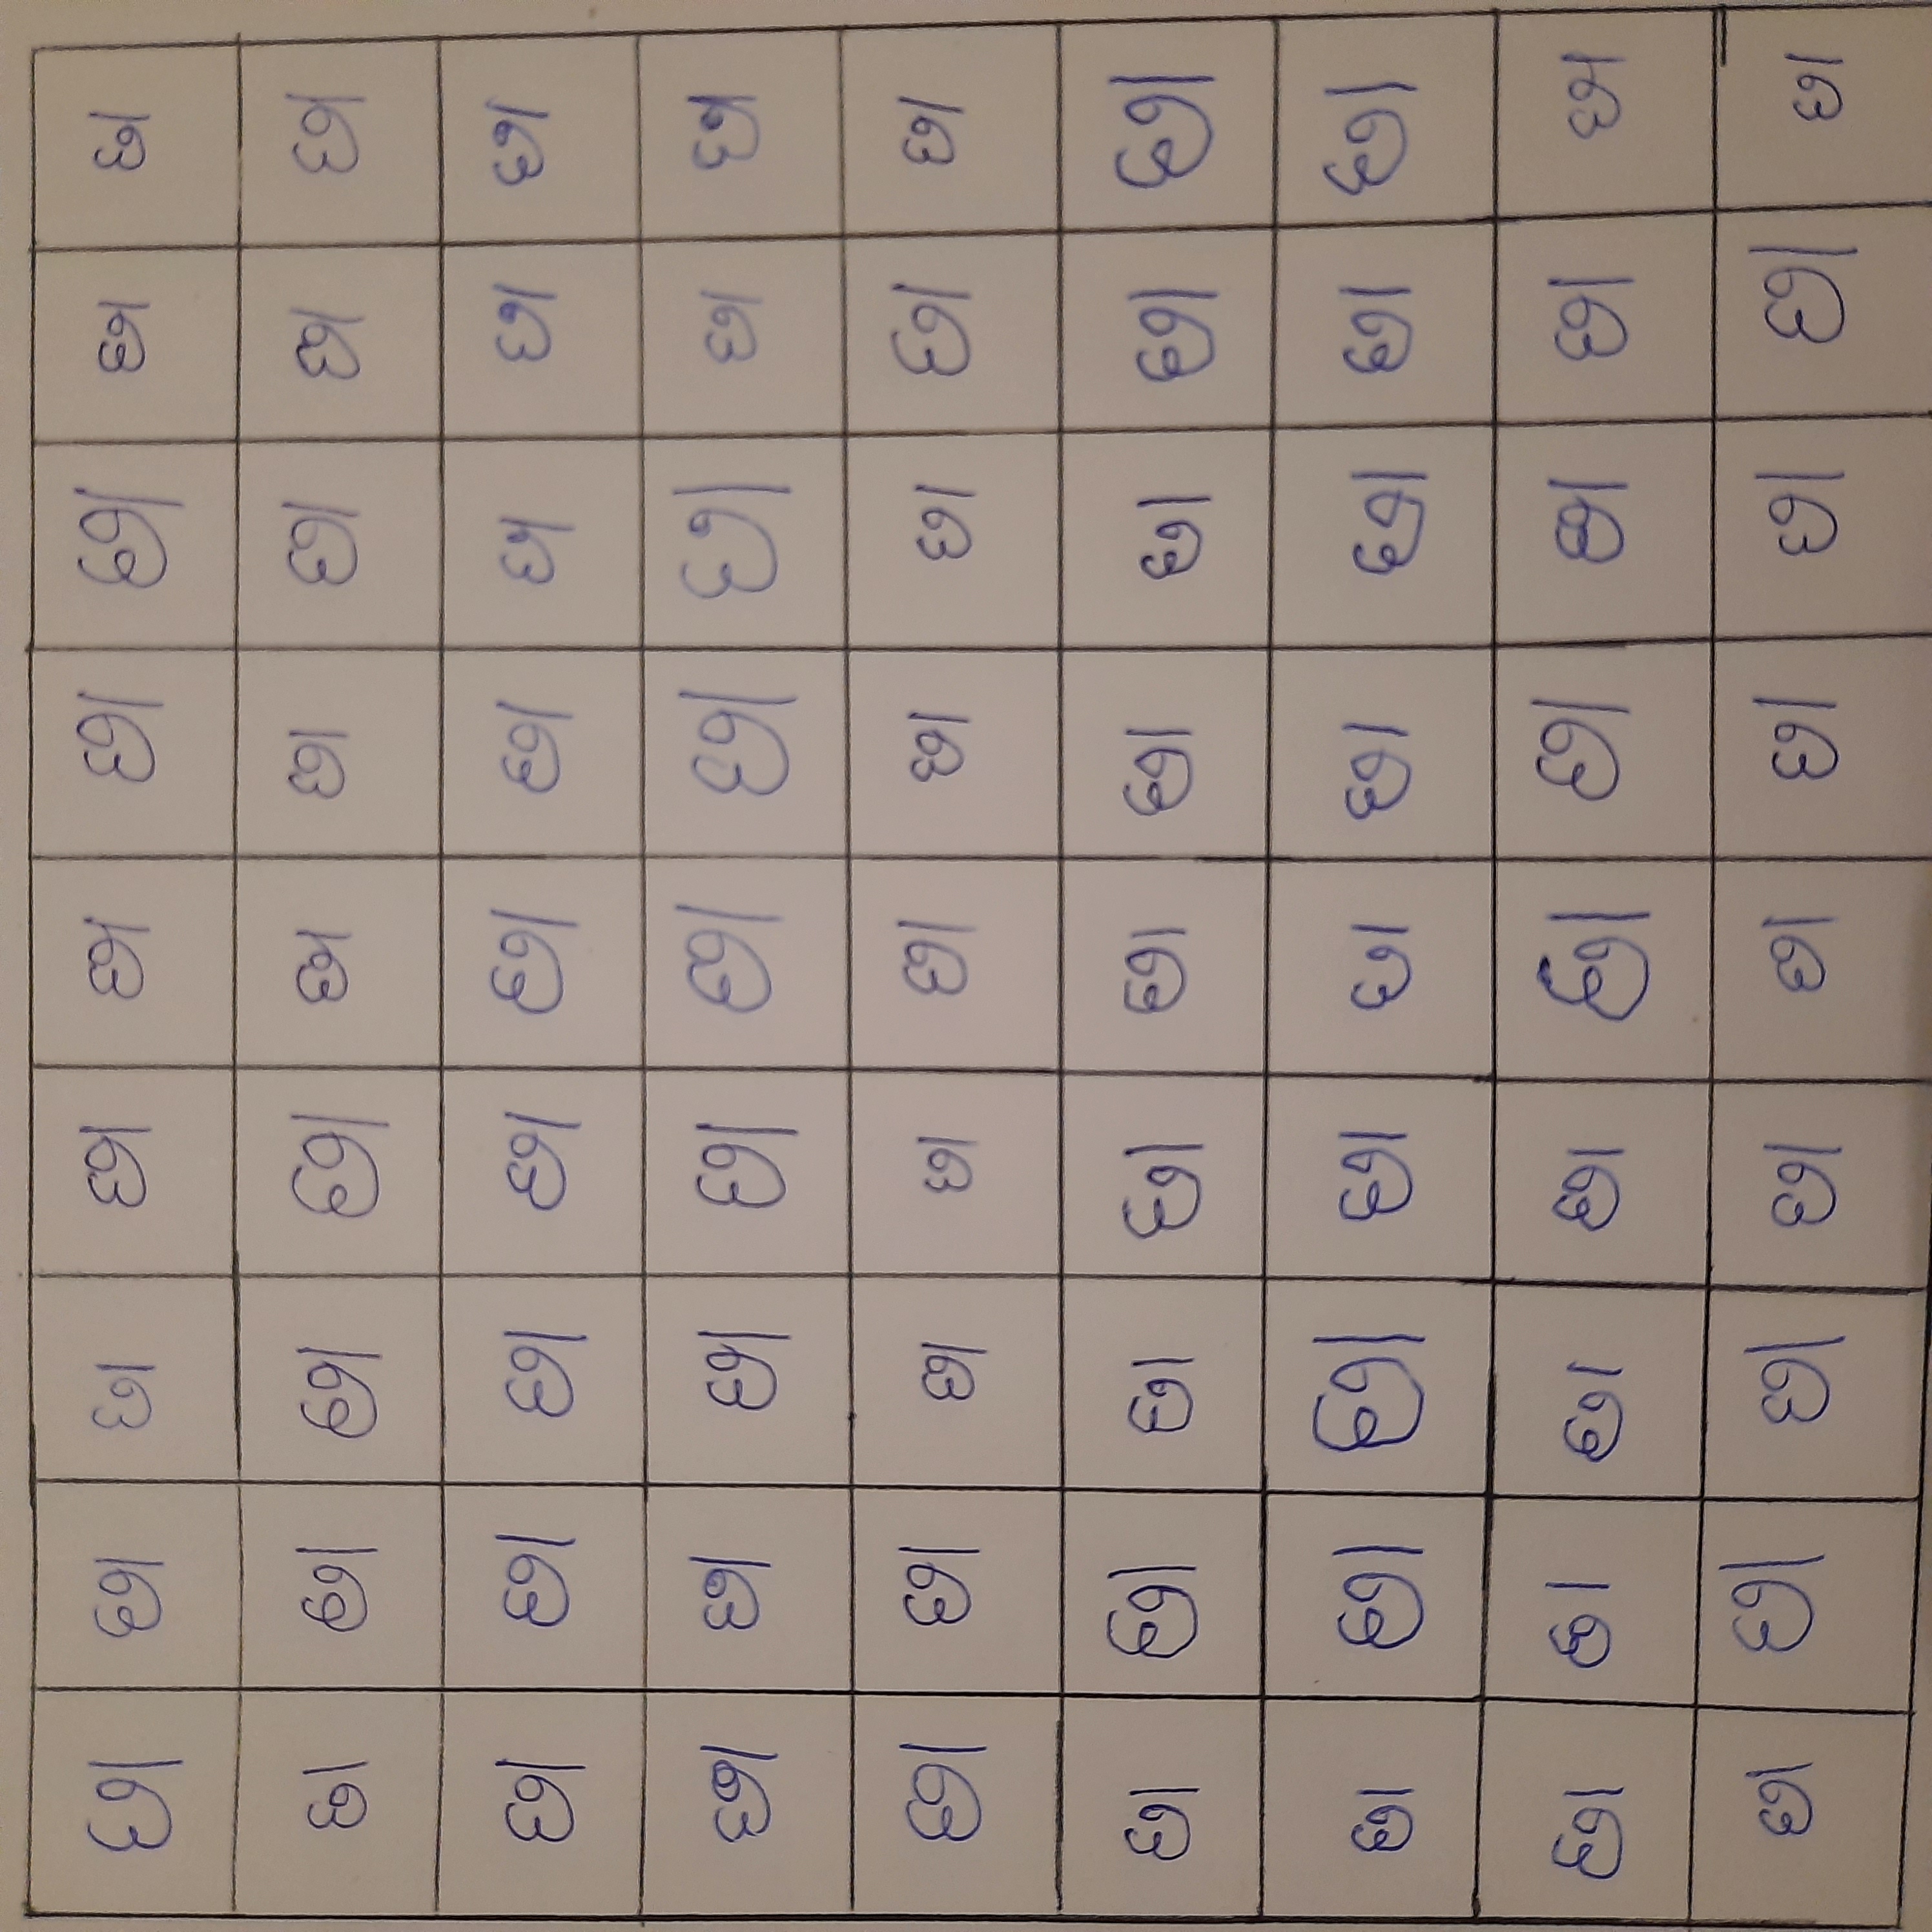 ଛା ଛା ଛା ଛା ଛା ଛା ଛା ଛା ଛା
ଛା ଛା ଛା ଛା ଛା ଛା ଛା ଛା ଛା
ଛା ଛା ଛା ଛା ଛା ଛା ଛା ଛା ଛା
ଛା ଛା ଛା ଛା ଛା ଛା ଛା ଛା ଛା
ଛା ଛା ଛା ଛା ଛା ଛା ଛା ଛା ଛା
ଛା ଛା ଛା ଛା ଛା ଛା ଛା ଛା ଛା
ଛା ଛା ଛା ଛା ଛା ଛା ଛା ଛା ଛା
ଛା ଛା ଛା ଛା ଛା ଛା ଛା ଛା ଛା
ଛା ଛା ଛା ଛା ଛା ଛା ଛା ଛା ଛା